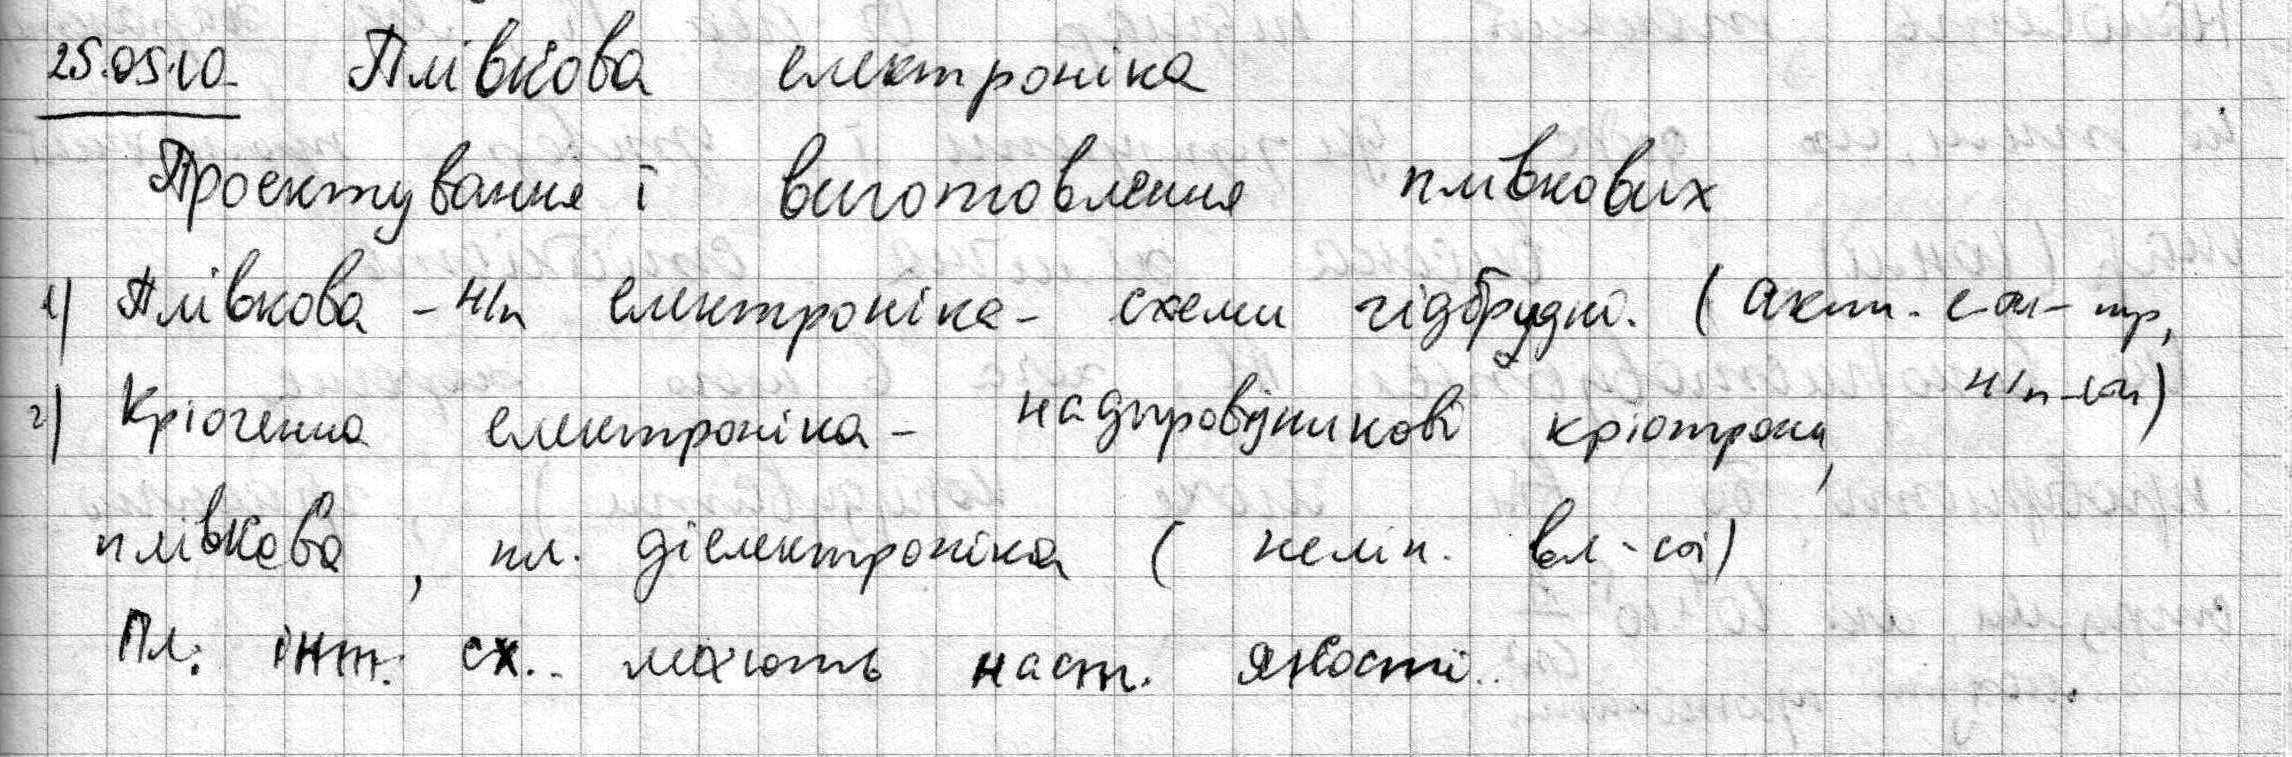 25.05.10. Плівкова електроніка
Проектування і виготовлення плівкових
1) Плівкова - н/п електроніка - схеми гідбрудні. (акт. ел-ти - тр,
н/п-ел)
2) Кріогенна електроніка - надпровідникові кріотрони,
плівкова, пл. діелектроніка ( нелін. вл-сті)
Пл. інт. сх. мають наст. якості.